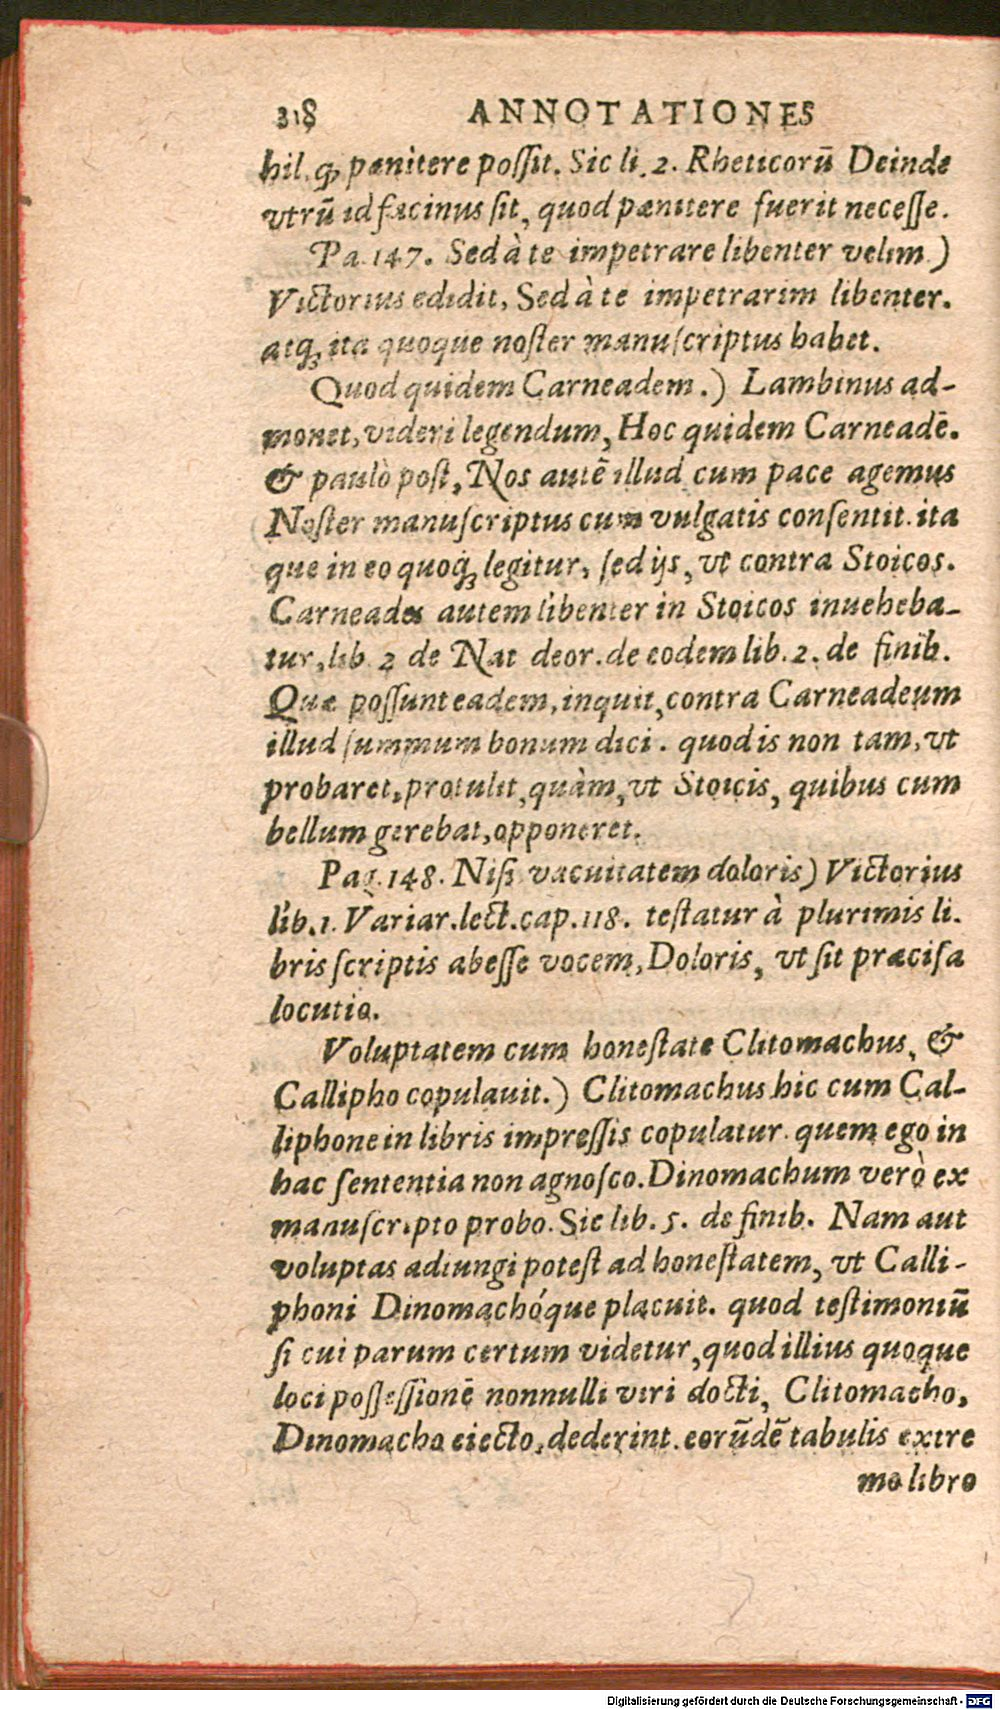 318 ANNOTATIONES
hil. qꝫ pænitere poſſit. Sic li. 2. Rheticorū Deinde
vtrū id facinus ſit, quod pænitere fuerit neceſſe.
Pa. 147. Sed à te impetrare libenter velim.)
Victorius edidit, Sed à te impetrarim libenter.
atqꝫ ita quoque noſter manuſcriptus habet.
Quod quidem Carneadem.) Lambinus ad-
monet, videri legendum, Hoc quidem Carneadē.
& paulò poſt, Nos autē illud cum pace agemus
Noſter manuſcriptus cum vulgatis conſentit. ita
que in eo quoqꝫ legitur, ſed ijs, vt contra Stoicos.
Carneades autem libenter in Stoicos inueheba-
tur, lib. 2 de Nat deor. de eodem lib. 2. de finib.
Quæ poſſunt eadem, inquit, contra Carneadeum
illud ſummum bonum dici. quod is non tam, vt
probaret, protulit, quàm, vt Stoicis, quibus cum
bellum gerebat, opponeret.
Pag. 148. Niſi vacuitatem doloris) Victorius
lib. 1. Variar. lect. cap. 118. teſtatur à plurimis li.
bris ſcriptis abeſſe vocem, Doloris, vt ſit præciſa
locutio.
Voluptatem cum honeſtate Clitomachus, &
Callipho copulauit.) Clitomachus hic cum Cal-
liphone in libris impreſſis copulatur. quem ego in
hac ſententia non agnoſco. Dinomachum verò ex
manuſcripto probo. Sic lib. 5. de finib. Nam aut
voluptas adiungi poteſt ad honeſtatem, vt Calli-
phoni Dinomachóque placuit. quod teſtimoniū
ſi cui parum certum videtur, quod illius quoque
loci poſſeſſionē nonnulli viri docti, Clitomacho,
Dinomacho eiecto, dederint. eorūdē tabulis extre
mo libro
Digitalisierung gefördert durch die Deutsche Forschungsgemeinschaft - DFG